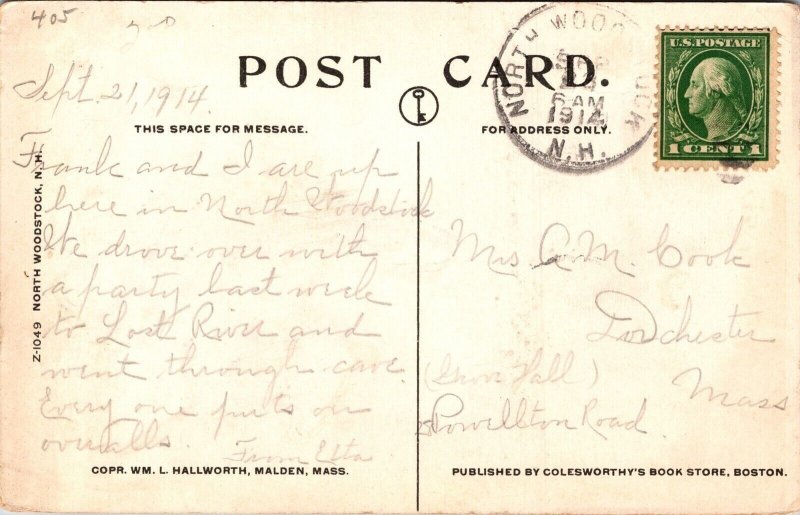 405
POST CARD.
Sept. 21, 1914.
THIS SPACE FOR MESSAGE.
FOR ADDRESS ONLY.
NORTH WOODSTOCK
6 AM
1914
N.H.
U.S. POSTAGE
1 CENT 1
Frank and I are up
here in North Woodstock
We drove over with
a party last week
to Lost River and
went through cave.
Every one puts on
overalls.
From Etta
Z-1049 NORTH WOODSTOCK, N.H.
Mrs A. M. Cook
Dorchester
(Grove Hall)
Mass
28 Powellton Road.
COPR. WM. L. HALLWORTH, MALDEN, MASS.
PUBLISHED BY COLESWORTHY'S BOOK STORE, BOSTON.